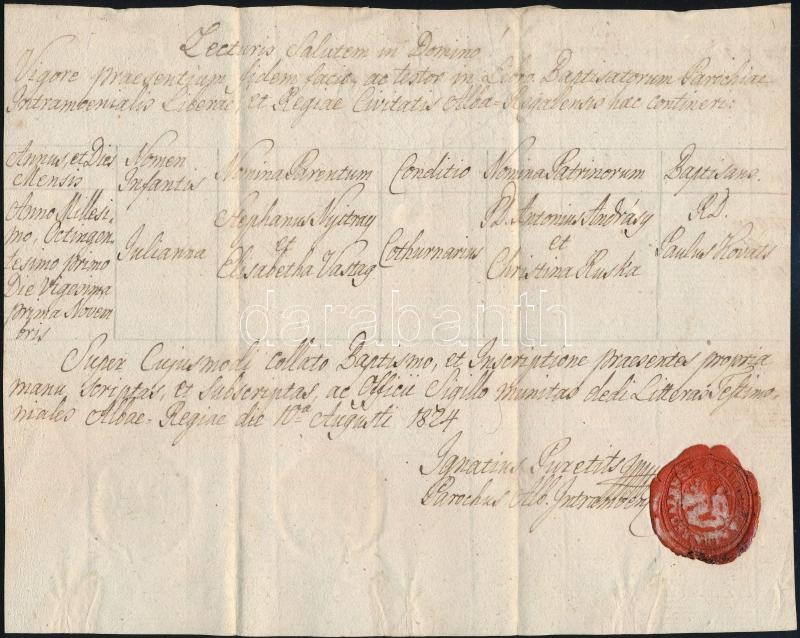 Lecturis Salutem in Domino!
Vigore praesentium fidem facio, ac testor in Libro Baptisatorum Parochiae
Intramoenialis Liberae, et Regiae Civitatis Alba-Regalensis hac contineri:
Annus, et Dies Mensis
Nomen Infantis
Nomina Parentum
Conditio
Nomina Patrinorum
Baptisans.
Anno Millesi
mo, Octingen
tesimo primo
Die Vigesima
prima Novem
bris
Julianna
Stephanus Nyitray
et
Elisabetha Vastag
Cothurnarius
PD. Antonius Andrásy
et
Christina Kuska
RD.
Paulus Kováts
darabanth
Super Cujusmodi collato Baptismo, et Inscriptione praesentes propria
manu scriptas, et subscriptas, ac Officii Sigillo munitas dedi Litteras Testimo-
niales Albae-Regiae die 10a Augusti 1824
Ignatius Puretits
Parochus Alb. Intramoen